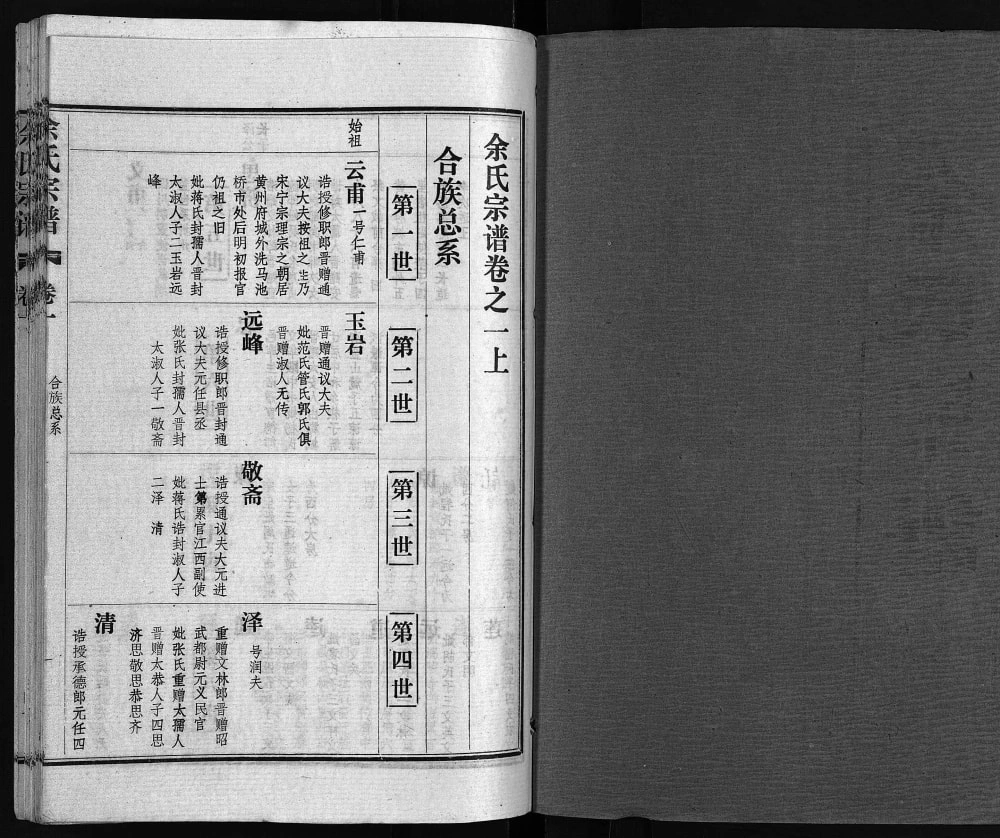 余氏宗谱卷之一上
合族总系
第一世
第二世
第三世
第四世
始祖
云甫一号仁甫
诰授修职郎晋赠通
议大夫按祖之生乃
宋宁宗理宗之朝居
黄州府城外洗马池
桥市处后明初报官
仍祖之旧
妣蒋氏封孺人晋封
太淑人子二玉岩远
峰
玉岩
晋赠通议大夫
妣范氏管氏郭氏俱
晋赠淑人无传
远峰
诰授修职郎晋封通
议大夫元任县丞
妣张氏封孺人晋封
太淑人子一敬斋
敬斋
诰授通议夫大元进
士第累官江西副使
妣蒋氏诰封淑人子
二泽 清
泽
号润夫
重赠文林郎晋赠昭
武都尉元义民官
妣张氏重赠太孺人
晋赠太恭人子四思
济思敬思恭思齐
清
诰授承德郎元任四
余氏宗谱
卷一
合族总系